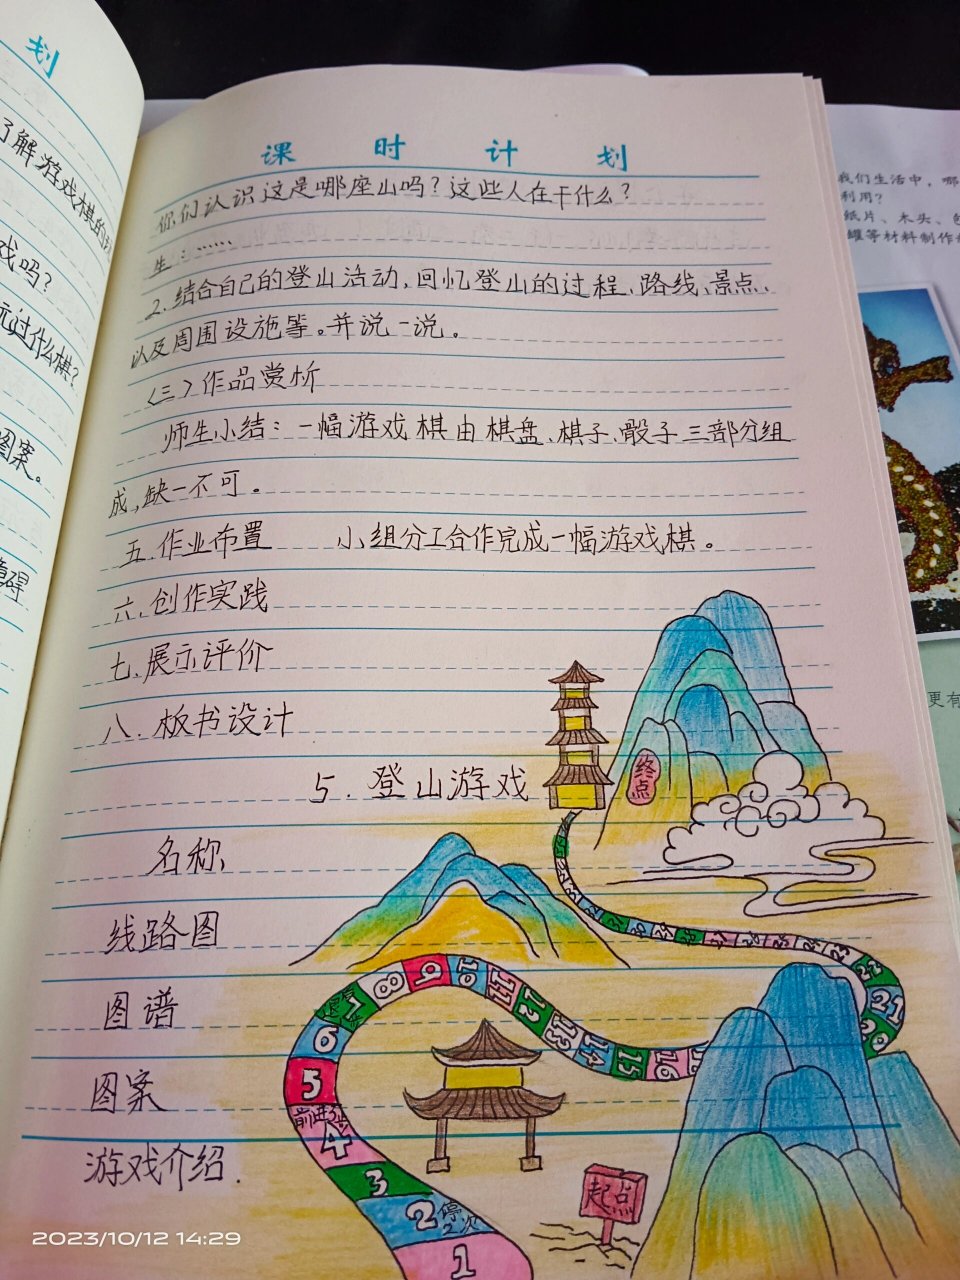 划
了解游戏棋的
戏吗?
玩过什么棋?
图案。
碍
课时计划
你们认识这是哪座山吗?这些人在干什么?
生:……
2.结合自己的登山活动,回忆登山的过程、路线、景点、
以及周围设施等。并说一说。
(三)作品赏析
师生小结:一幅游戏棋由棋盘、棋子、骰子三部分组
成,缺一不可。
五.作业布置 小组分工合作完成一幅游戏棋。
六.创作实践
七.展示评价
八.板书设计
5.登山游戏
名称
线路图
图谱
图案
游戏介绍.
终点
22
21
20
16
15
14
13
12
11
10
9
8
7
6
5
前进3步
4
3
2
停2次
1
起点
我们生活中,哪
利用?
纸片、木头、包
罐等材料制作
更有
2023/10/12 14:29